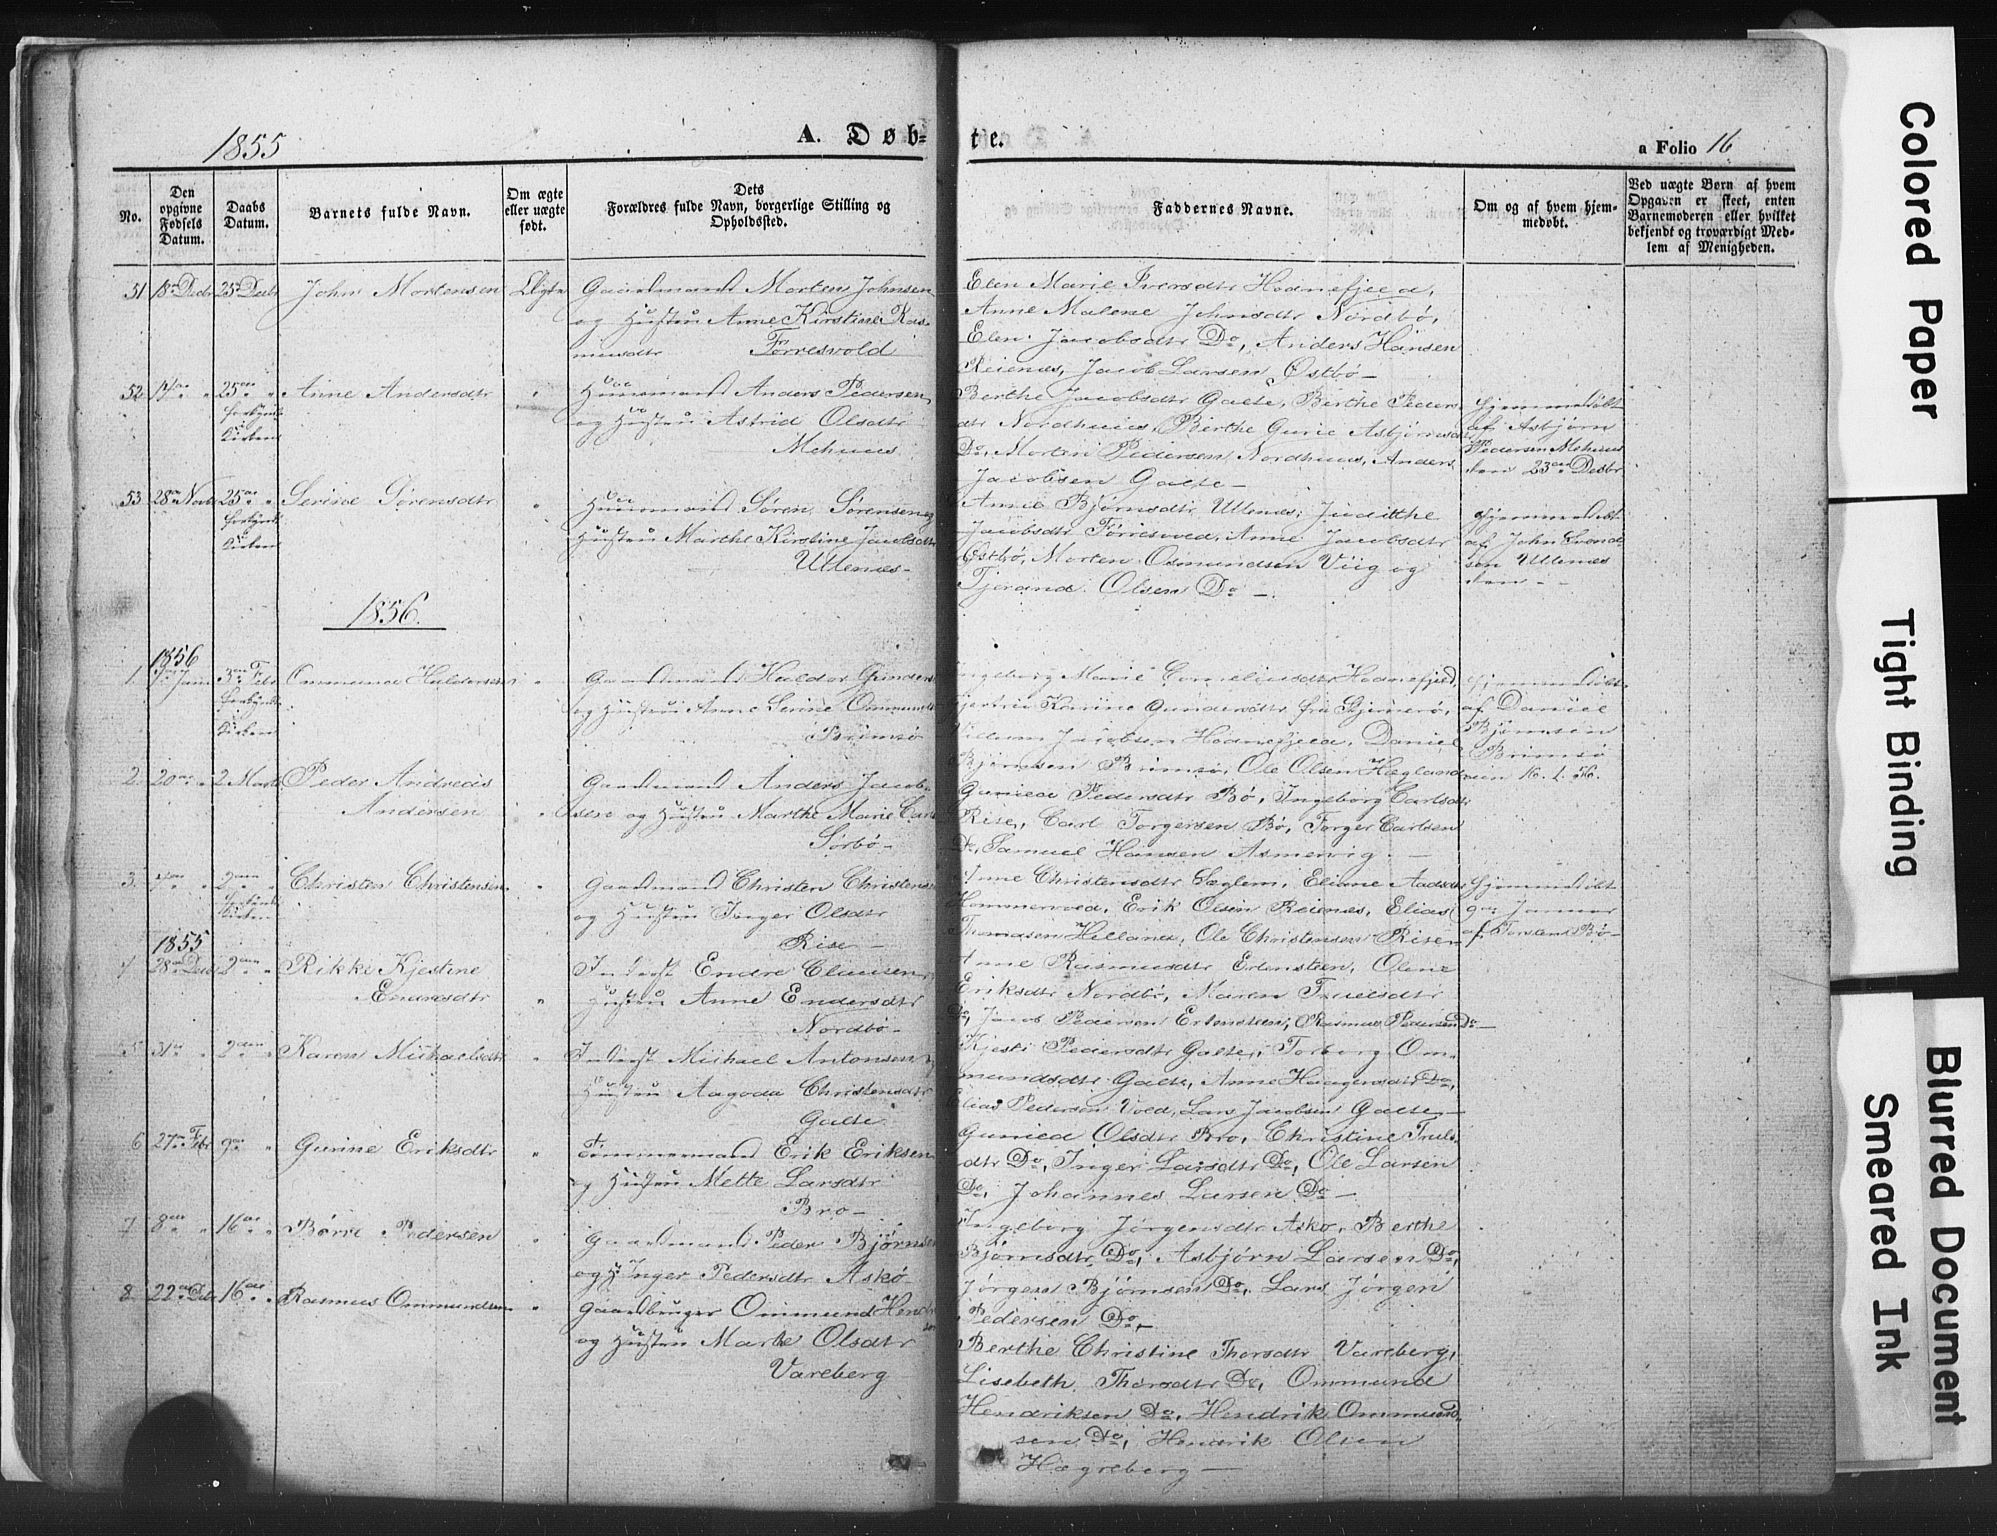 1855
A. Døb=
te.
a Folio 16
No.
Den opgivne Fødsels Datum.
Daabs Datum.
Barnets fulde Navn.
Om ægte eller uægte født.
Dets Forældres fulde Navn, borgerlige Stilling og Opholdssted.
Faddernes Navne.
Om og af hvem hjemmedøbt.
Ved uægte Børn af hvem Opgaven er skeet, enten Barnemoderen eller hvilket bekjendt og troværdigt Medlem af Menigheden.
51 18de Decbr 25de Decbr John Mortensen Ægte
Gaardmand Morten Johnsen
og Hustru Anne Kirstine Ras-
musdtr Førresvold
Elen Marie Iversdtr Hodnefjeld,
Anne Malene Johnsdtr Nordbø,
Elen Jacobsdtr Do, Anders Hansen
Reienæs, Jacob Larsen Østbø-
52 25de " Anne Andersdtr "
Huusmand Anders Pedersen
og Hustru Astrid Olsdtr
Mehuus
Berthe Jacobsdtr Galte, Berthe Peders-
dtr Nordhuus, Berthe Gurie Asbjørnsdtr
Do, Morten Pedersen Nordhuus, Anders
Jacobsen Galte-
Hjemmedøbt
af Asbjørn
Pedersen Mehuus
den 23de Decbr
53 28de Novbr 25de " Serine Sørensdtr "
Huusmand Søren Sørensen og
Hustru Marthe Kirstine Jacobsdtr
Utlenæs-
Anne Bjørnsdtr Utlenæs, Judithe
Jacobsdtr Førresvold, Anne Jacobsdtr
Østbø, Morten Osmundsen Viig og
Tjerand Olsen Do-
Hjemmedøbt
af John
sen Utlenæs
den - -
1856.
1856
1 3die Febr Ommund Haldorsen "
Gaardmand Haldor Gunders
og Hustru Anne Serine Ommunds
Brimsø
Ingeborg Marie Corneliusdtr Hodnefjeld,
Karine Gundersdtr fra
Villum Jacobsen Hodnefjeld, Daniel
Bjørnsen Brimsø, Ole Olsen Hægland
Hjemmedøbt
af Daniel
Bjørnsen
Brimsø
den 16. 1. 56.
2 20de " 2 Marts Peder Andreas
Andersen "
Gaardmand Anders Jacob-
sen og Hustru Marthe Marie Carls
Sørbø-
Gunild Pedersdtr Bø, Ingeborg Carlsdtr
Rise, Carl Torgersen Bø, Torger Carlsen
Do, Samuel Hansen Asmervig.-
3. " 2den " Christen Christensen "
Gaardmand Christen Christensen
og Hustru Inger Olsdtr
Rise-
Anne Christensdtr Sæglem, Eliane Aadsdtr
Hommervold, Erik Olsen Reienæs, Elias
Thomasen Helland, Ole Christensen Risen
Hjemmedøbt
9de Januar
af Torsten Bø-
1855
4 28de Decbr 2den " Rikke Kjestine
Endresdtr "
Inderst Endre Clausen
Hustru Anne Endersdtr
Nordbø-
Anne Rasmusdtr Erlensteen, Olene
Eriksdtr Nordbø, Maren Truelsdtr
Do, Jacob Pedersen Erlensteen, Rasmus Pedersen Do-
5 31te " 2den " Karen Michaelsdtr "
Inderst Michael Antonsen og
Hustru Aagoda Christensdtr
Galte
Kjesti Pedersdtr Galte, Torborg Om-
mundsdtr Galte, Anne Haagensdtr Do,
Elias Pedersen Vold, Lars Jacobsen Galte-
6 27de Febr 9de " Gurine Eriksdtr "
Tømmermand Erik Eriksen
og Hustru Mette Larsdtr
Bro-
Gunild Olsdtr Bro, Christine Truls-
dtr Do, Inger Larsdtr Do, Ole Larsen
Do, Johannes Larsen Do-
7 8de " 16de " Børre Pedersen "
Gaardmand Peder Bjørnsen
og H. Inger Pedersdtr Askø-
Ingeborg Jørgensdtr Askø, Berthe
Bjørnsdtr Do, Asbjørn Larsen Do,
Jørgen Bjørnsen Do, Lars Jørgen
Pedersen Do,-
8 22de 16de " Rasmus Ommundsen "
Gaardbruger Ommund Hendrik
sen
og Hustru Marte Olsdtr
Vareberg
Berthe Christine Thorsdtr Vareberg,
Lisebeth Thorsdtr Do, Ommund
Hendriksen Do, Hendrik Ommund-
sen Do, Hendrik Olsen
Hægreberg-
Colored Paper
Tight Binding
Blurred Document
Smeared Ink